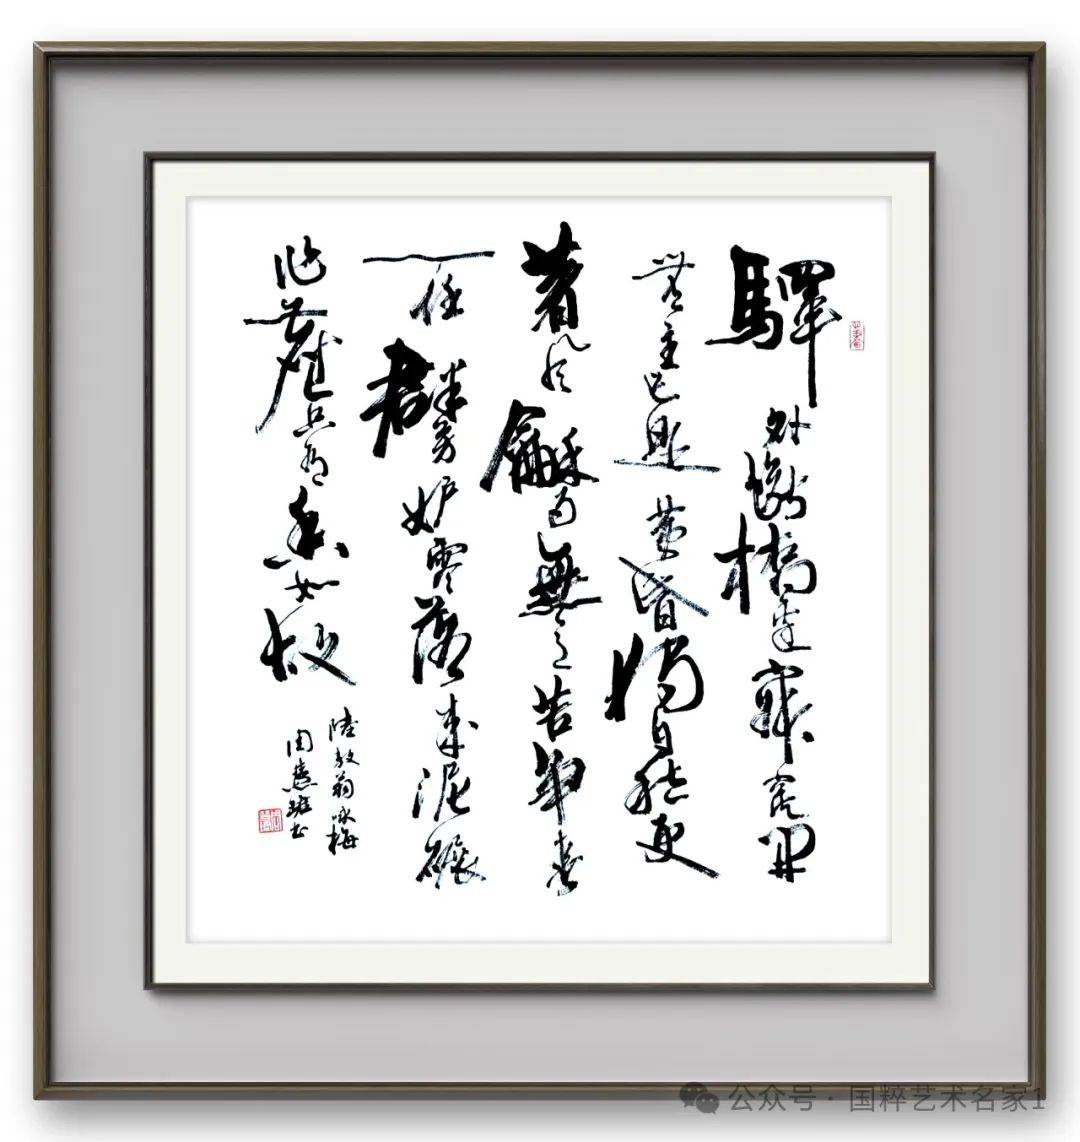 驛外斷橋邊寂寞開
無主已是黄昏獨自愁更
著風龢雨無意苦爭春
一任群芳妒零落成泥碾
作塵只有香如故
陸放翁咏梅
周慧书
公众号 · 国粹艺术名家1